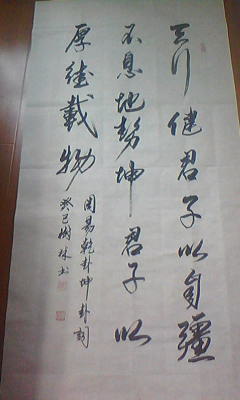 天行健君子以自疆
不息地势坤君子以
厚德載物
周易乾卦坤卦词
癸已树林书